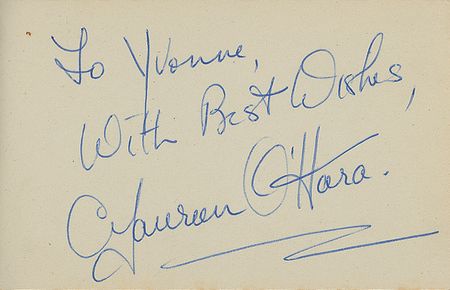 To Yvonne,
With Best Wishes,
Maureen O'Hara.